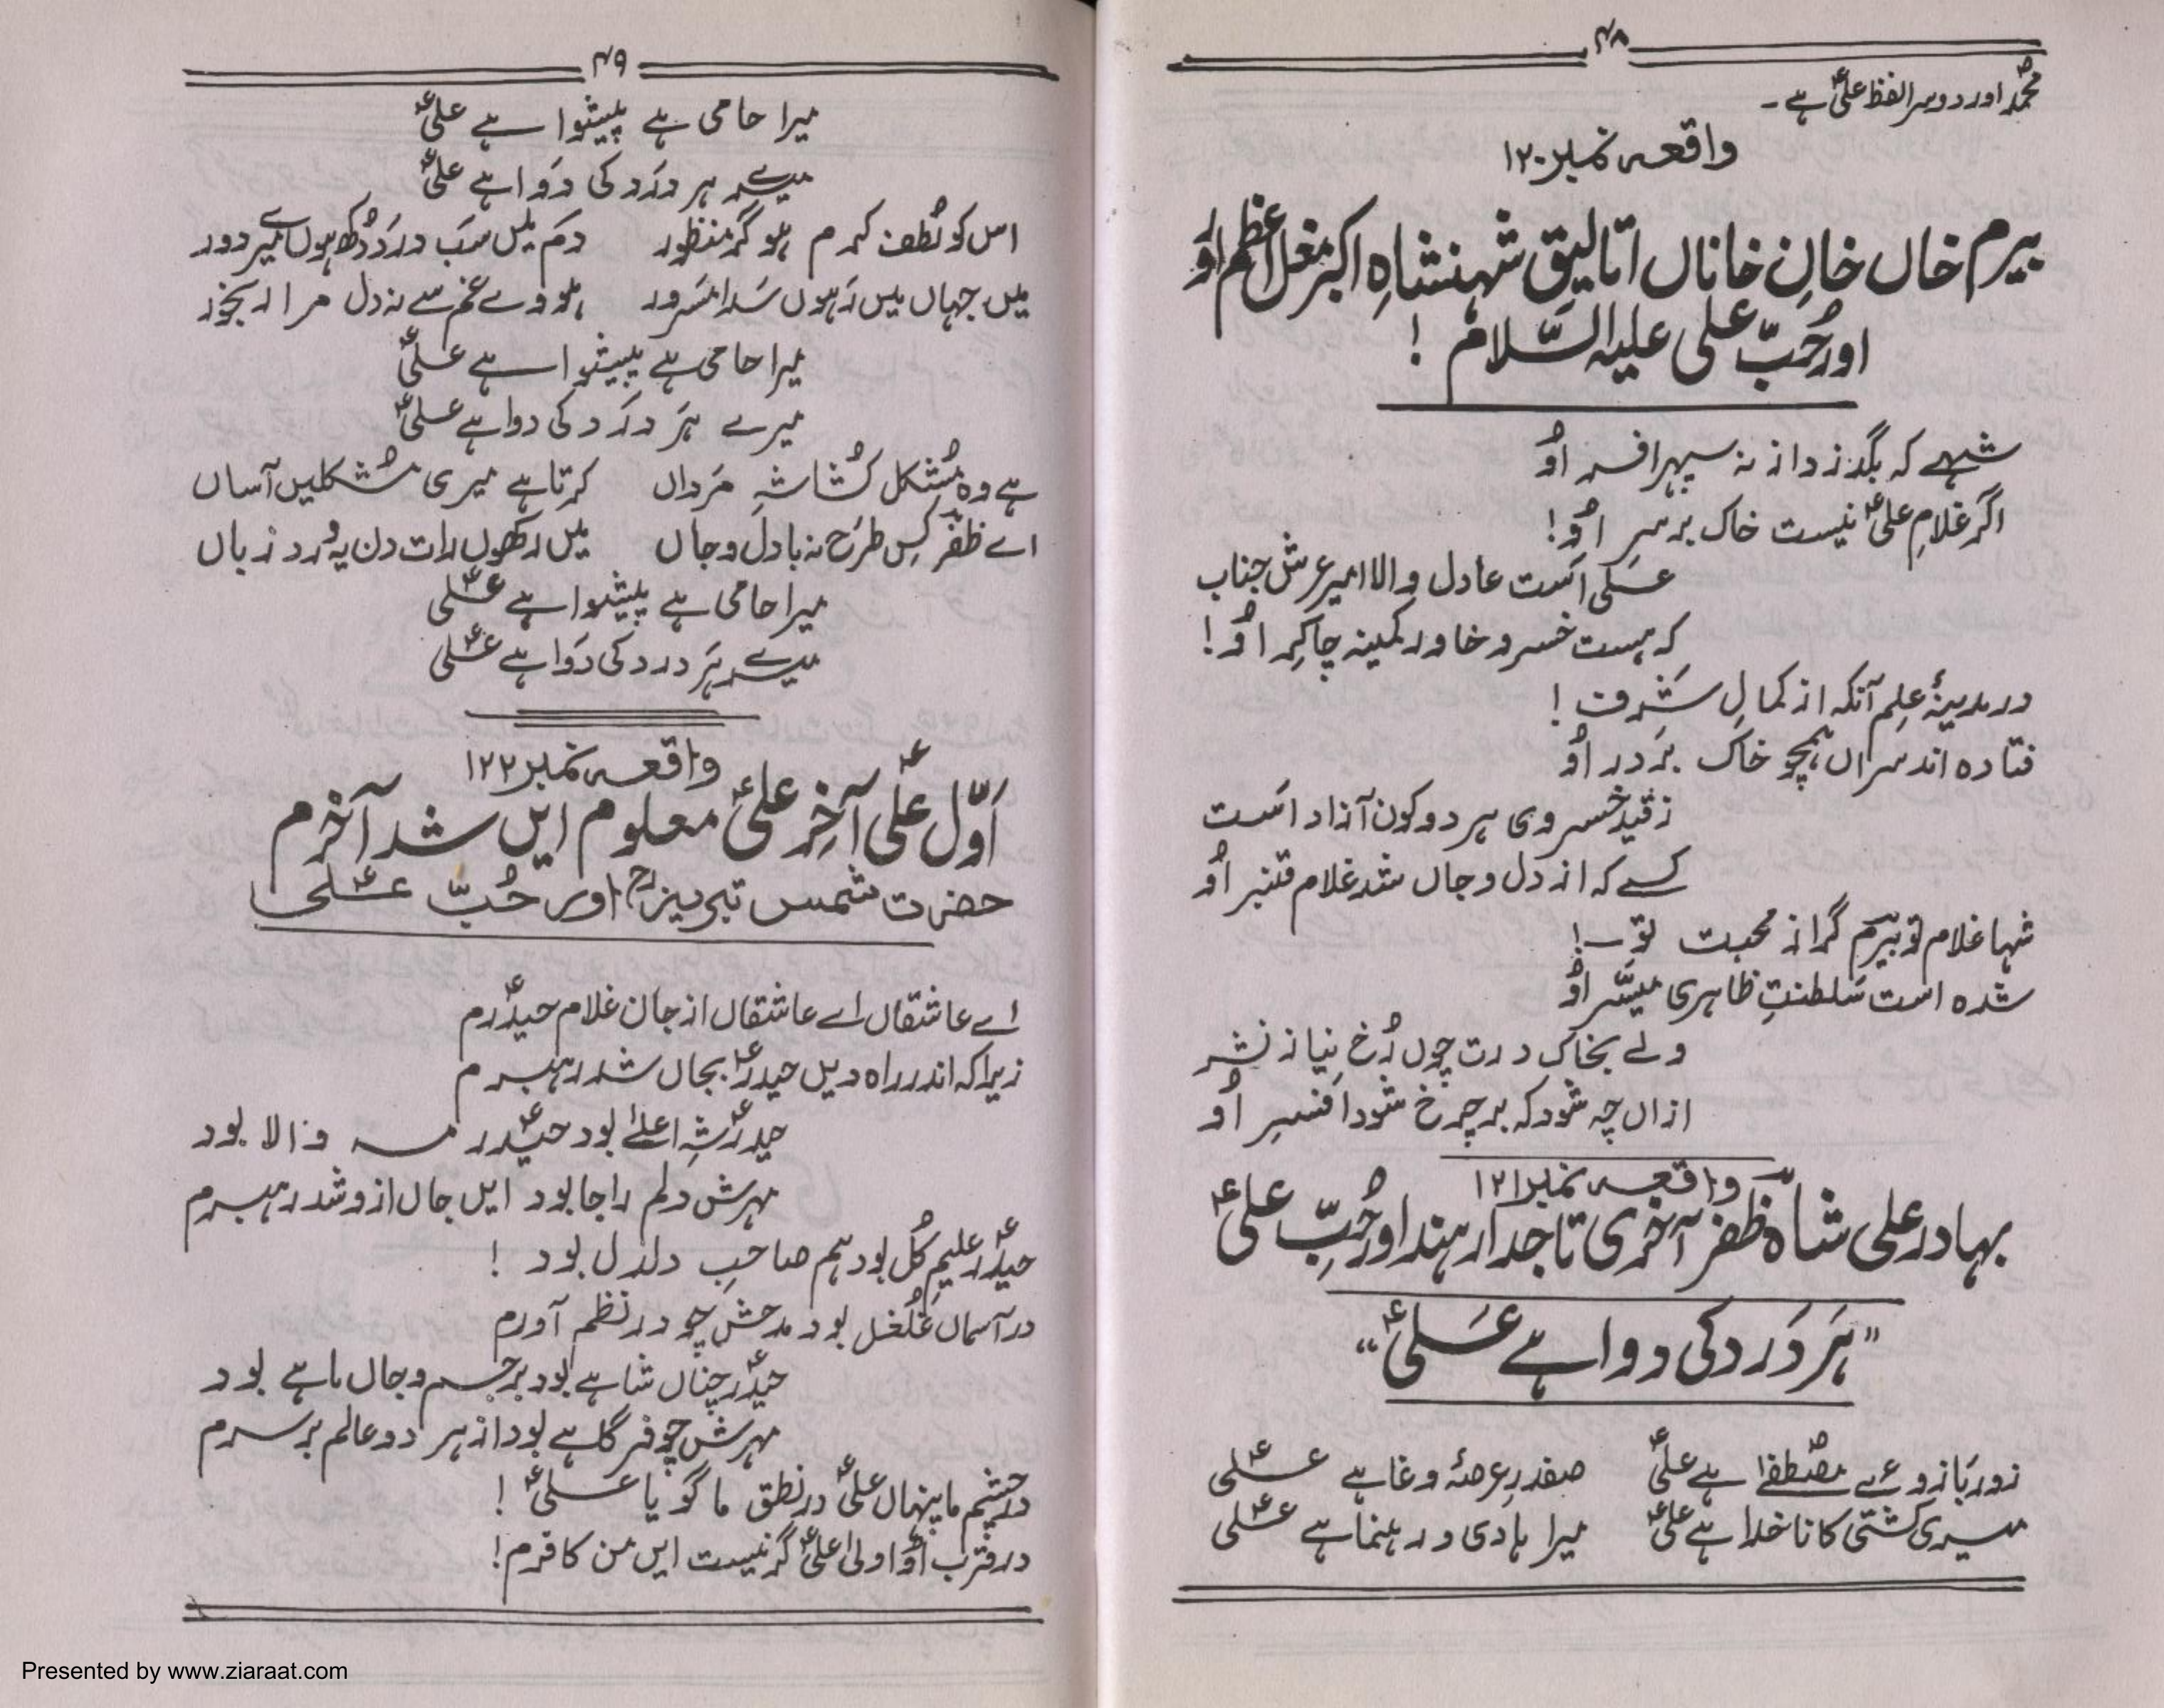 ۴۸
محمدؐ اور دوسرا لفظ علیؑ ہے۔
واقعہ نمبر ۱۲۰
بیرم خاں خانِ خاناں اتالیقِ شہنشاہِ اکبر مغل اعظم اور
اور حُبِّ علی علیہ السّلام !
شہے کہ بگذرد از نہ سپہر افسر اُو
اگر غلامِ علیؑ نیست خاک بر سرِ اُو!
علی است عادل و والا امیر عرش جناب
کہ ہست خسرو خاور کمینہ چاکرِ اُو!
در مدینۂ علم آنکہ از کمالِ شرف !
فتادہ اند سراں ہمچو خاک بر در اُو
ز قید خسروی ہر دو کون آزاد است
کسے کہ از دل و جاں شد غلام قنبر اُو
شہا غلام تو بیرم گر از محبت تو !
شدہ است سَلطنتِ ظاہری میسّر اُو
ولے بخاک درت چوں رُخ نیاز نشر
ازاں چہ شود کہ بر چرخ شود افسرِ اُو
واقعہ نمبر ۱۲۱
بہادر علی شاہ ظفر آخری تاجدار ہند اور حُبِّ علیؑ
"ہَر دَرد کی دوا ہے عَلیؑ"
زور بازوئے مصطفےٰؐ ہے علیؑ صفدرِ عرصۂ وغا ہے علیؑ
میری کشتی کا ناخدا ہے علیؑ میرا ہادی و رہنما ہے علیؑ
۴۹
میرا حامی ہے پیشوا ہے علیؑ
میرے ہر درَد کی دَوا ہے علیؑ
اس کو لُطف کرم ہو گر منظور دَم میں سَب درَد دُکھ ہوں میرے دور
میں جہاں میں رَہوں سَدا مَسرور ہووے غم سے نہ دل مرا رنجور
میرا حامی ہے پیشوا ہے علیؑ
میرے ہَر درَد کی دوا ہے علیؑ
ہے وہ مُشکل کُشا شہِ مَرداں کرتا ہے میری مُشکلیں آساں
اے ظفر کِس طرَح نہ با دل و جاں میں رکھوں رات دن یہ وِرد زباں
میرا حامی ہے پیشوا ہے علیؑ
میرے ہَر درد کی دَوا ہے علیؑ
واقعہ نمبر ۱۲۲
اَوّل علیؑ آخِر علیؑ معلوم ایں شد آخرم
حضرت شمس تبریزؒ اور حُبّ علیؑ
اے عاشقاں اے عاشقاں از جان غلام حیدرؑم
زیرا کہ اندر راہ دیں حیدرؑ بجاں شد رہبرم
حیدرؑ شہِ اعلےٰ بود حیدرؑ مہ والا بود
مہرش دلم را جا بود ایں جاں ازو شد رہبرم
حیدرؑ علیمِ کُل بود ہم صاحبِ دلدل بود !
در آسماں غُلغل بود مدحش چو در نظم آورم
حیدرؑ چناں شاہے بود بر جسم و جاں ماہے بود
مہرش چو فرگاہے بود از ہر دو عالم بر سرم
در چشم ما پنہاں علیؑ در نطق ما گویا علیؑ !
در قرب اُو اولیٰ علیؑ گر نیست ایں من کافرم!
Presented by www.ziaraat.com